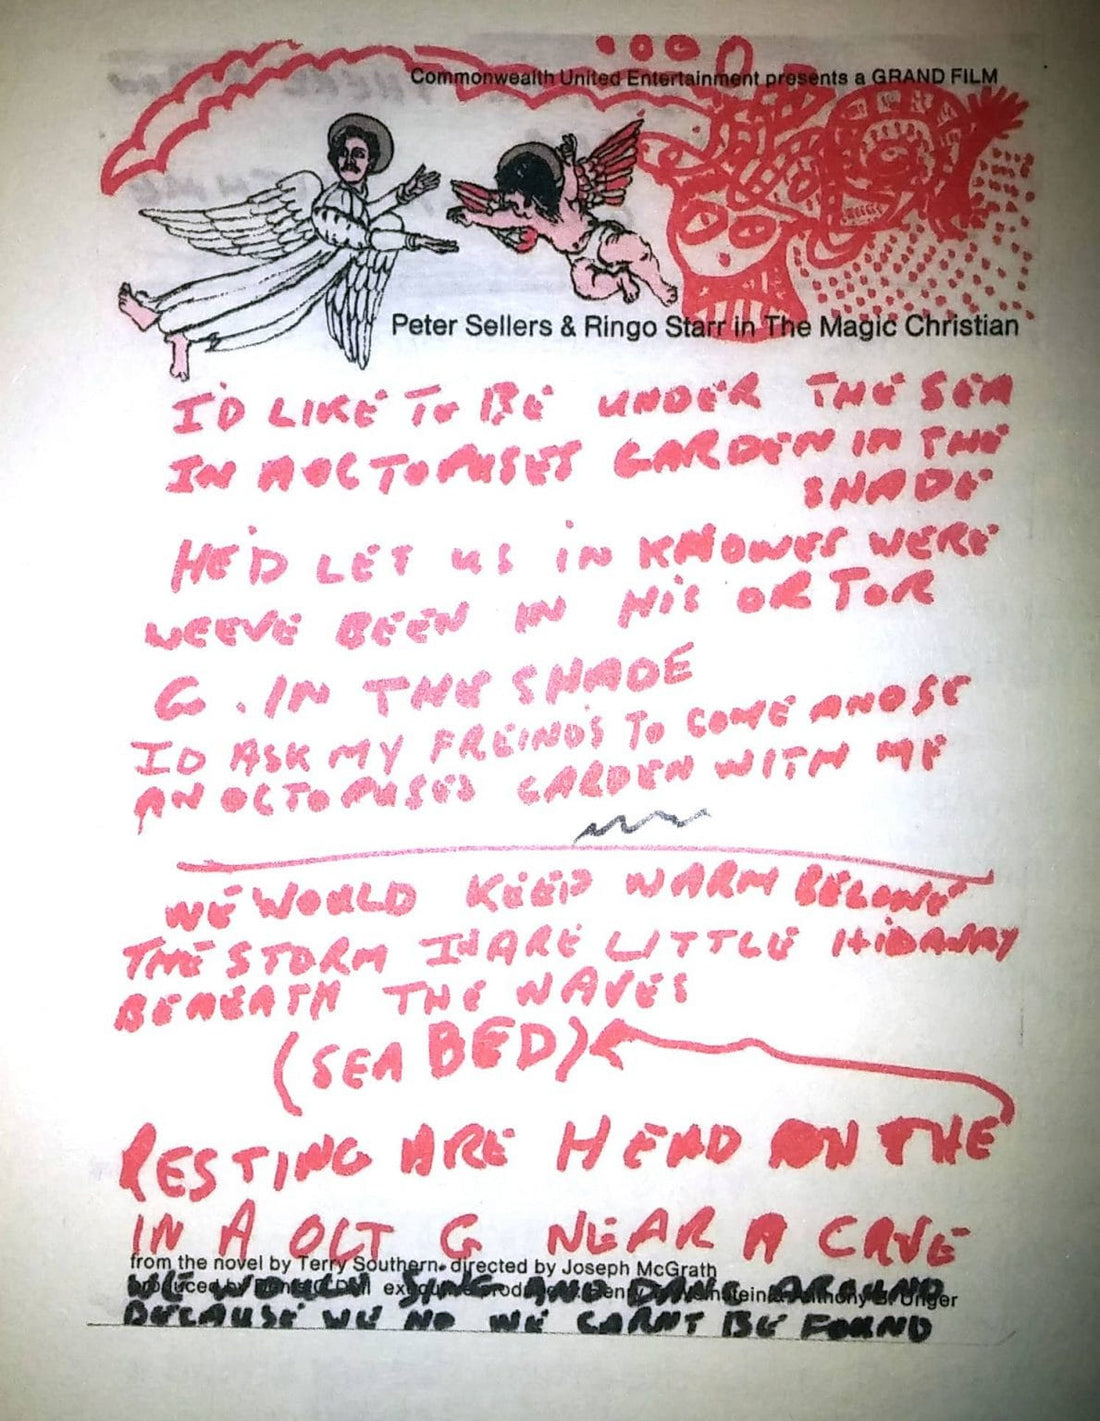 Commonwealth United Entertainment presents a GRAND FILM
Peter Sellers & Ringo Starr in The Magic Christian
I'D LIKE To BE UNDER THE SEA
IN A OCTOPUSES GARDEN IN THE
SHADE
HE'D LET US IN KNOWES WERE
WEEVE BEEN IN HIS OR TOR
G. IN THE SHADE
ID ASK MY FREINDS TO COME ANDSE
AN OCTOPUSES GARDEN WITH ME
WE WOULD KEEP WARM BELOWE
THE STORM IN ARE LITTLE HIDAWAY
BENEATH THE WAVES
(SEA BED)
RESTING ARE HEAD ON THE
IN A OCT G NEAR A CAVE
from the novel by Terry Southern. directed by Joseph McGrath
produced by executive
WE WOULD SING AND DANC AROUND
BECAUSE WE NO WE CARNT BE FOUND